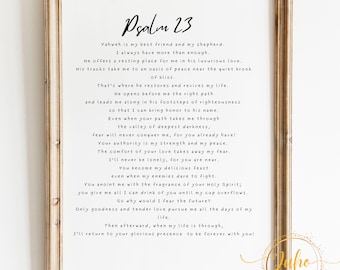 Psalm 23
Yahweh is my best friend and my shepherd.
I always have more than enough
He offers a resting place for me in his luxurious love.
His tracks take me to an oasis of peace near the quiet brook
of bliss.
That's where he restores and revives my life.
He opens before me the right path
and leads me along in his footsteps of righteousness
so that I can bring honor to his name.
Even when your path takes me through
the valley of deepest darkness,
fear will never conquer me, for you already have!
Your authority is my strength and my peace.
The comfort of your love takes away my fear.
I'll never be lonely, for you are near.
You become my delicious feast
even when my enemies dare to fight.
You anoint me with the fragrance of your Holy Spirit;
you give me all I can drink of you until my cup overflows.
So why would I fear the future?
Only goodness and tender love pursue me all the days of my
life.
Then afterward, when my life is through,
I'll return to your glorious presence to be forever with you!